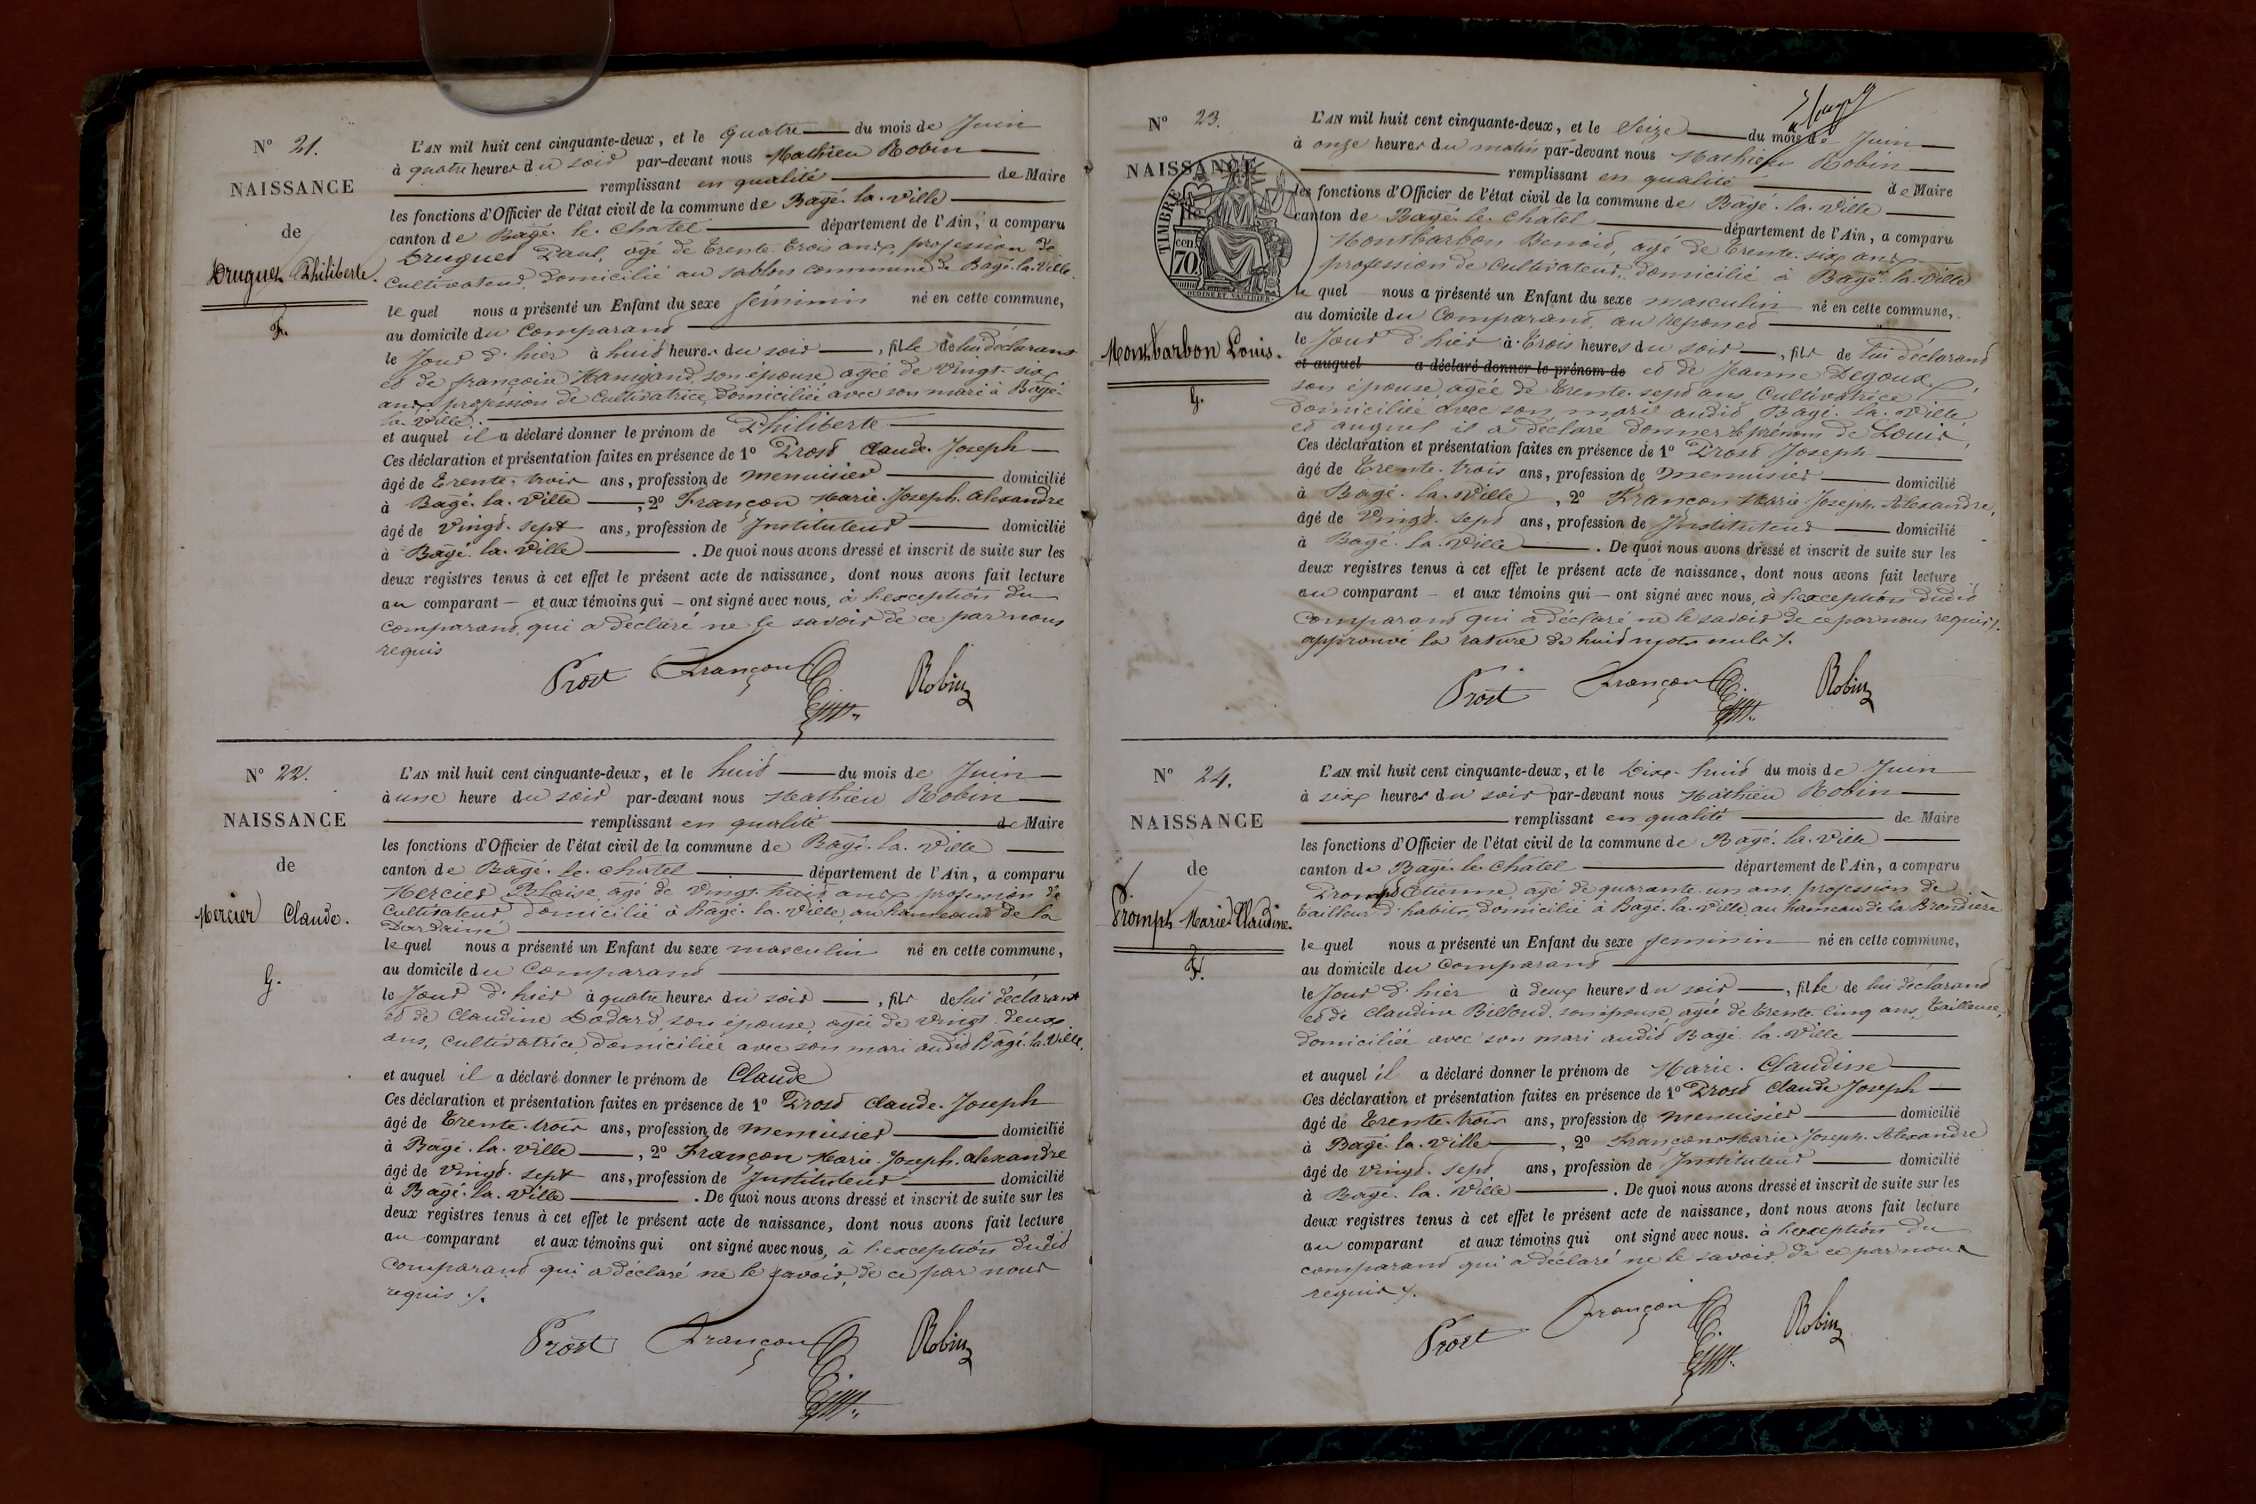 N° 21.
NAISSANCE
de
Druguet Philiberte.
F.
L'AN mil huit cent cinquante-deux, et le quatre du mois de Juin
à quatre heures du soir par-devant nous Mathieu Robin
remplissant en qualité de Maire
les fonctions d'Officier de l'état civil de la commune de Bagé-la-Ville
canton de Bagé-le-Chatel département de l'Ain, a comparu
Druguet Paul, agé de trente-trois ans, profession de
cultivateur, domicilié au sablon commune de Bagé-la-Ville.
lequel nous a présenté un Enfant du sexe féminin né en cette commune,
au domicile du Comparant
le Jour d'hier à huit heures du soir, fille de lui déclarant
et de françoise Manigand, son épouse, agée de vingt-six
ans, profession de Cultivatrice, domiciliée avec son mari à Bagé-
la-Ville.
et auquel il a déclaré donner le prénom de Philiberte
Ces déclaration et présentation faites en présence de 1° Prost Claude-Joseph
âgé de trente-trois ans, profession de menuisier domicilié
à Bagé-la-Ville, 2° Françon Marie-Joseph-Alexandre
âgé de vingt-sept ans, profession de Instituteur domicilié
à Bagé-la-Ville. De quoi nous avons dressé et inscrit de suite sur les
deux registres tenus à cet effet le présent acte de naissance, dont nous avons fait lecture
au comparant — et aux témoins qui — ont signé avec nous, à l'exception du
comparant, qui a déclaré ne le savoir de ce par nous
requis
Prost Françon Robin
N° 22.
NAISSANCE
de
Mercier Claude.
G.
L'AN mil huit cent cinquante-deux, et le huit du mois de Juin
à une heure du soir par-devant nous Mathieu Robin
remplissant en qualité de Maire
les fonctions d'Officier de l'état civil de la commune de Bagé-la-Ville
canton de Bagé-le-châtel département de l'Ain, a comparu
Mercier Blaise, agé de vingt-huit ans, profession de
Cultivateur, domicilié à Bagé-la-Ville, au hameau de la
lequel nous a présenté un Enfant du sexe masculin né en cette commune,
au domicile du Comparant
le Jour d'hier à quatre heures du soir, fils de lui déclarant
et de Claudine Dodard, son épouse, agée de vingt-deux
ans, cultivatrice, domiciliée avec son mari audit Bagé-la-Ville.
et auquel il a déclaré donner le prénom de Claude
Ces déclaration et présentation faites en présence de 1° Prost Claude-Joseph
âgé de trente-trois ans, profession de menuisier domicilié
à Bagé-la-Ville, 2° Françon Marie-Joseph-alexandre
âgé de vingt-sept ans, profession de Instituteur domicilié
à Bagé-la-Ville. De quoi nous avons dressé et inscrit de suite sur les
deux registres tenus à cet effet le présent acte de naissance, dont nous avons fait lecture
au comparant et aux témoins qui ont signé avec nous, à l'exception dudit
comparant qui a déclaré ne le savoir, de ce par nous
requis ./.
Prost Françon Robin
N° 23.
NAISSANCE
TIMBRE
cen
70
Montbarbon Louis.
G.
L'AN mil huit cent cinquante-deux, et le seize du mois de Juin
à onze heures du matin par-devant nous Mathieu Robin
remplissant en qualité de Maire
les fonctions d'Officier de l'état civil de la commune de Bagé-la-Ville
canton de Bagé-le-Châtel département de l'Ain, a comparu
Montbarbon Benoit, agé de trente-six ans,
profession de Cultivateur, domicilié à Bagé-la-Ville
lequel nous a présenté un Enfant du sexe masculin né en cette commune,
au domicile du Comparant, au
le Jour d'hier à trois heures du soir, fils de lui déclarant
et auquel a déclaré donner le prénom de et de Jeanne Degoux,
son épouse, agée de trente-sept ans, Cultivatrice,
domiciliée avec son mari audit Bagé-la-Ville,
et auquel il a déclaré donner le prénom de Louis,
Ces déclaration et présentation faites en présence de 1° Prost Joseph
âgé de trente-trois ans, profession de menuisier domicilié
à Bagé-la-Ville, 2° Françon Marie-Joseph-Alexandre,
âgé de vingt-sept ans, profession de Instituteur domicilié
à Bagé-la-Ville. De quoi nous avons dressé et inscrit de suite sur les
deux registres tenus à cet effet le présent acte de naissance, dont nous avons fait lecture
au comparant — et aux témoins qui — ont signé avec nous, à l'exception dudit
comparant qui a déclaré ne le savoir de ce par nous requis ./.
approuvé la rature de huit mots nuls ./.
Prost Françon Robin
N° 24.
NAISSANCE
de
Promph Marie-Claudine.
F.
L'AN mil huit cent cinquante-deux, et le dix-huit du mois de Juin
à six heures du soir par-devant nous Mathieu Robin
remplissant en qualité de Maire
les fonctions d'Officier de l'état civil de la commune de Bagé-la-Ville
canton de Bagé-le-Châtel département de l'Ain, a comparu
Etienne agé de quarante-un ans, profession de
tailleur d'habits, domicilié à Bagé-la-Ville, au hameau de la Brondière
lequel nous a présenté un Enfant du sexe feminin né en cette commune,
au domicile du comparant
le Jour d'hier à deux heures du soir, fille de lui déclarant
et de Claudine Billoud, son épouse, agée de trente-cinq ans, tailleuse,
domiciliée avec son mari audit Bagé-la-Ville
et auquel il a déclaré donner le prénom de Marie-Claudine
Ces déclaration et présentation faites en présence de 1° Prost Claude Joseph
âgé de trente-trois ans, profession de menuisier domicilié
à Bagé-la-Ville, 2° Françon Marie-Joseph-Alexandre
âgé de vingt-sept ans, profession de Instituteur domicilié
à Bagé-la-Ville. De quoi nous avons dressé et inscrit de suite sur les
deux registres tenus à cet effet le présent acte de naissance, dont nous avons fait lecture
au comparant et aux témoins qui ont signé avec nous. à l'exception du
comparant qui a déclaré ne le savoir, de ce par nous
requis ./.
Prost Françon Robin